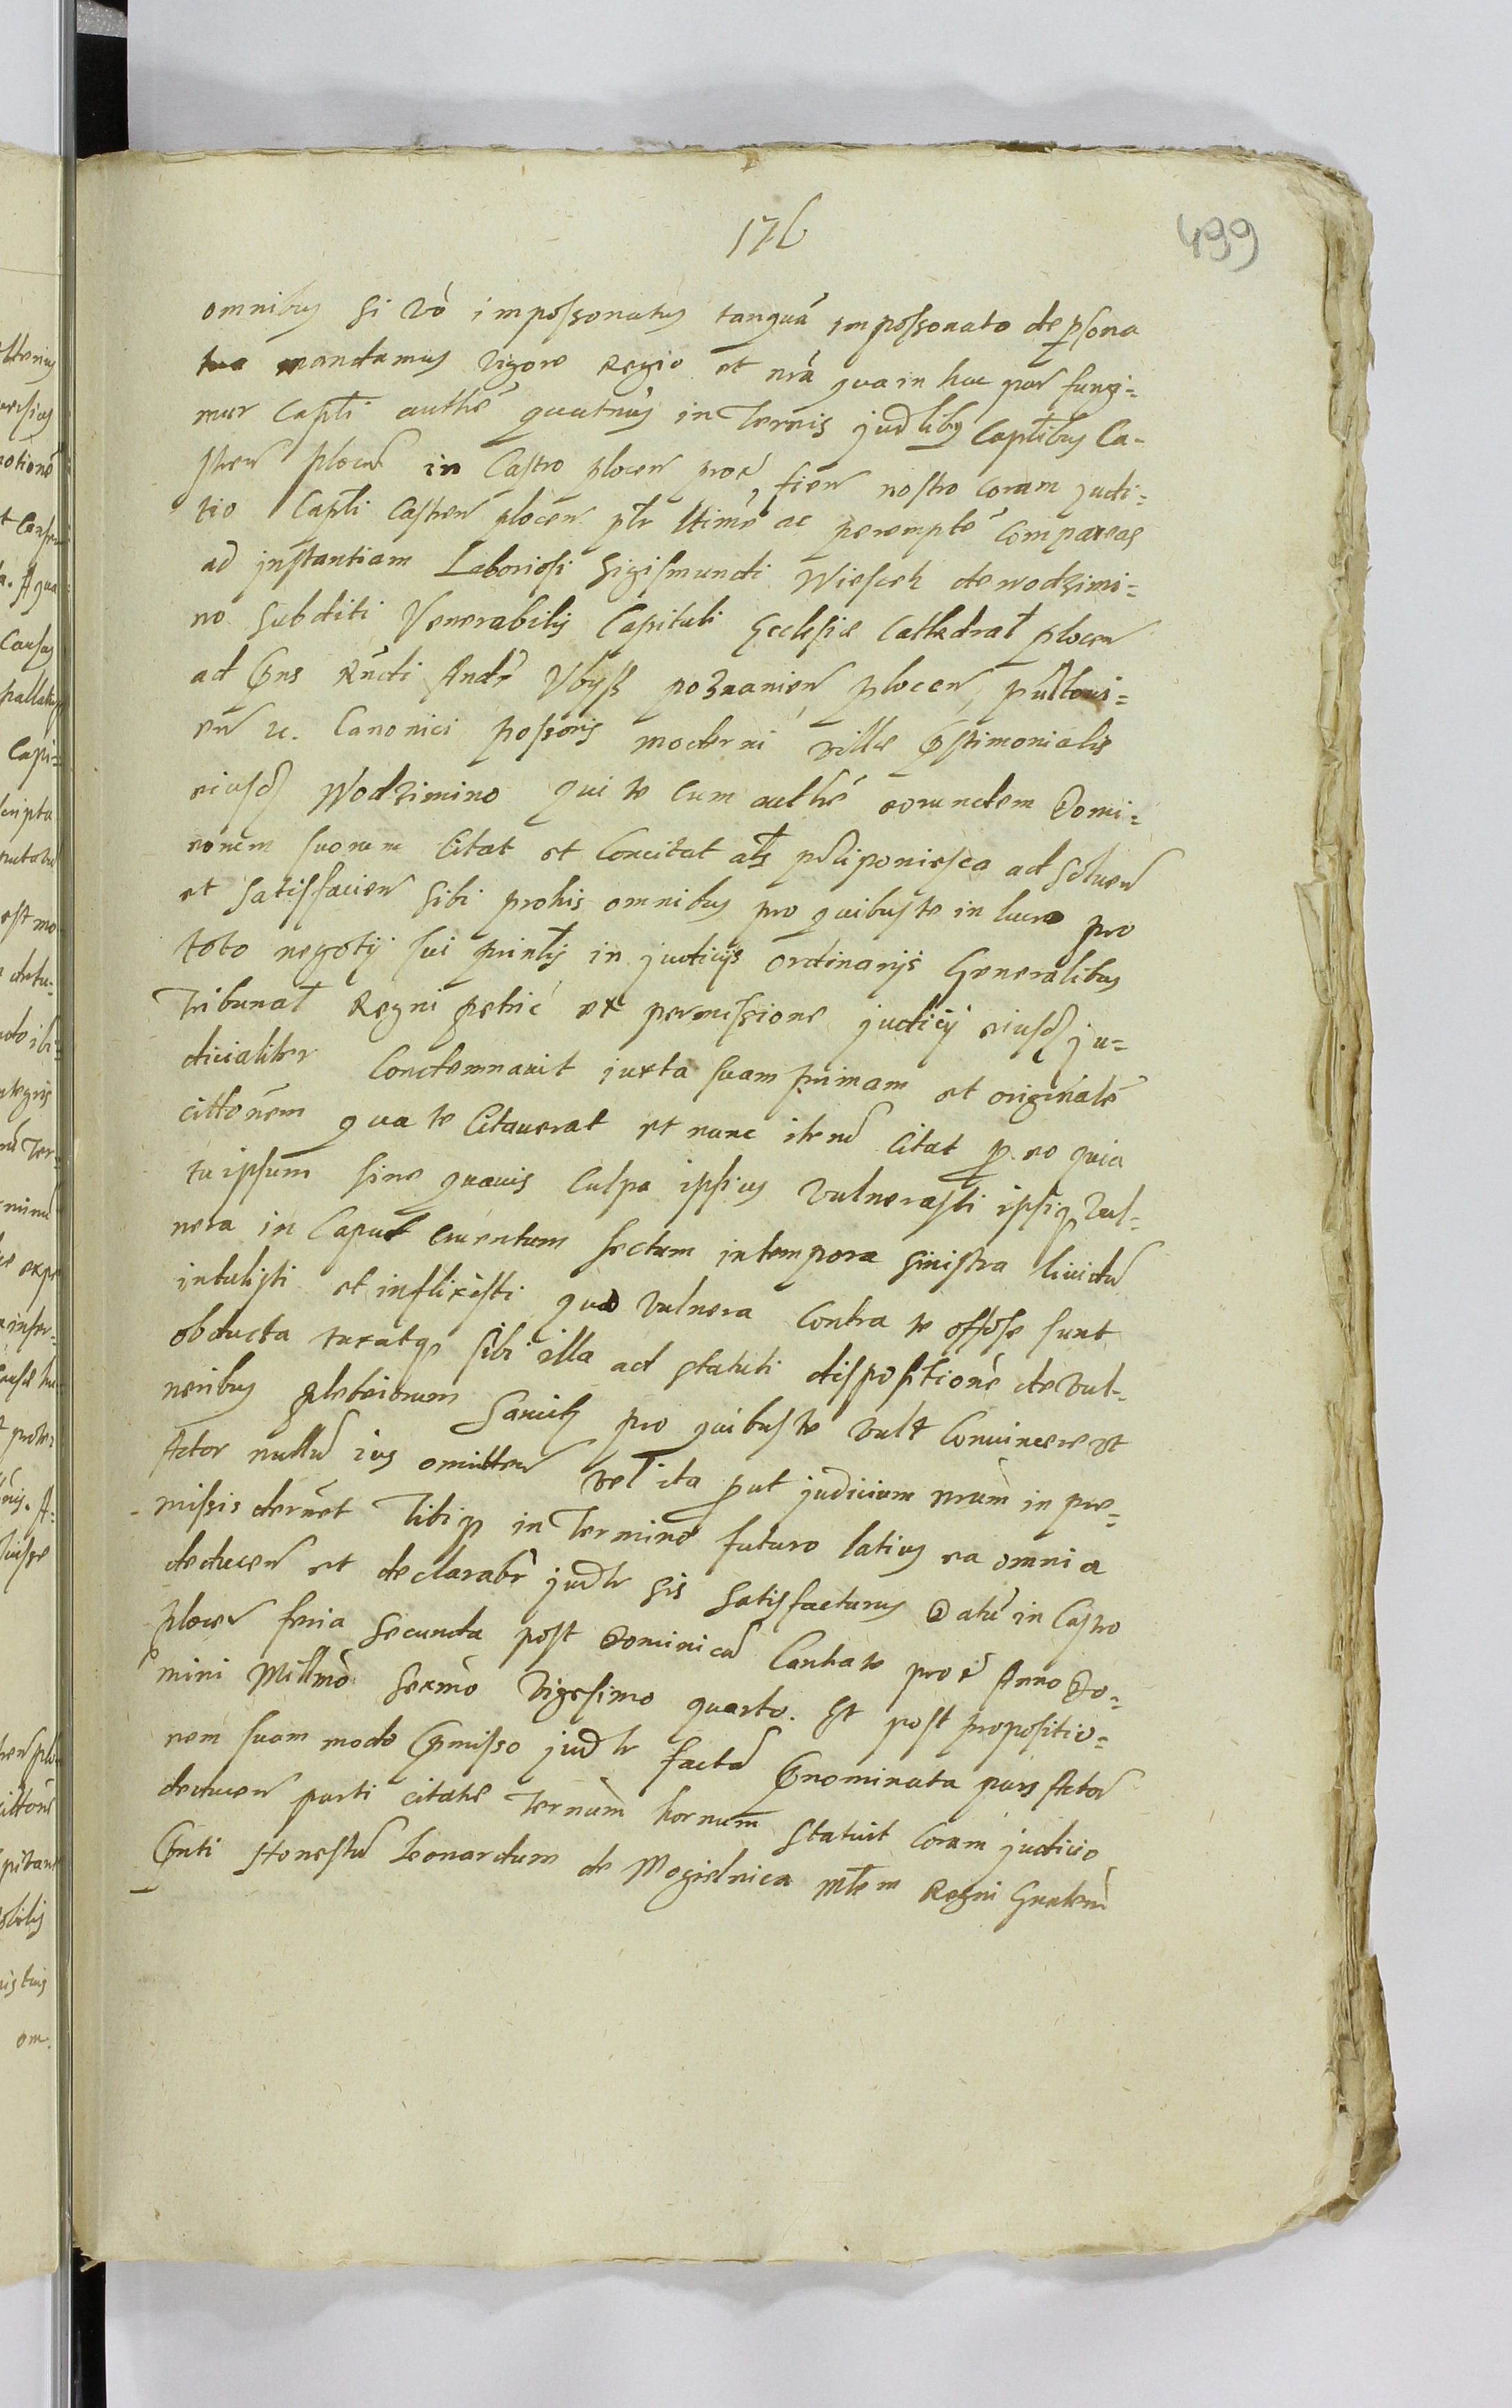 176
499
omnibus si vò impossonatus tanquã impossonato de psona
tua mandamus vigore Regio et nrã qua in hac par fungi=
mur Capli authẽ quatnùs in Ternis judlibus Captlibus Ca-
stren plocen in Castro plocen prox̃, fien nostro coram judi=
tio Captli Castren plocen ptr ltimè ac peremptè Compareas
ad jnstantiam Laboriosi Sigismundi Wiesek de wodzimi=
no subditi Venerabilis Capituli Ecclesiæ Cathedral plocen
ad Pns Rñdi Andr Vbysz poznanien, plocen, pultoui=
en etc. Canonici possoris moderni villæ Pstimonialis
eiusd Wodzimino qui te cum authẽ eorundem Domi=
norum suorum Citat et Concitat als prziponiesca ad soluen
et satisfacien sibi pro his omnibus pro quibus te in lucro pro
toto negotij sui printis in judicijs ordinarijs Generalibus
Tribunal Regni petric ex permissione judicij eiusd ju=
dicialiter Condemnauit juxta suam primam et originalẽ
cittonem qua te Citauerat et nunc iterũ Citat p eo quia
tu ipsum sine quauis Culpa ipsius vulnerasti ipsiq Vul-
nera in Caput cruentum sectum in tempora sinistra liuidũ
intulisti et inflixisti quæ vulnera contra te offose sunt
obducta taxatq sibi illa ad statuti dispositionẽ de vul-
neribus plebeiorum Sancitũ pro quibus te vult Conuincere et
Actor nullũ ius omitten vel ita put judicium nrum in pre=
missis dernet Tibiq in Termino futuro latius ea omnia
deducen et declarabr judtr sis satisfacturus Datũ in Castro
plocen feria secunda post Dominicã Cantate prox̃ Anno Do=
mini Millmò sexmò vigesimo quarto. Et post propositio=
nem suam modo Pmisso judtr factã Pnominata pars Actor
deducen parti citatæ Ternum hornum statuit coram judicio
Pnti Honestũ Leonardum de Mogielnica Mtem Regni Gnalem